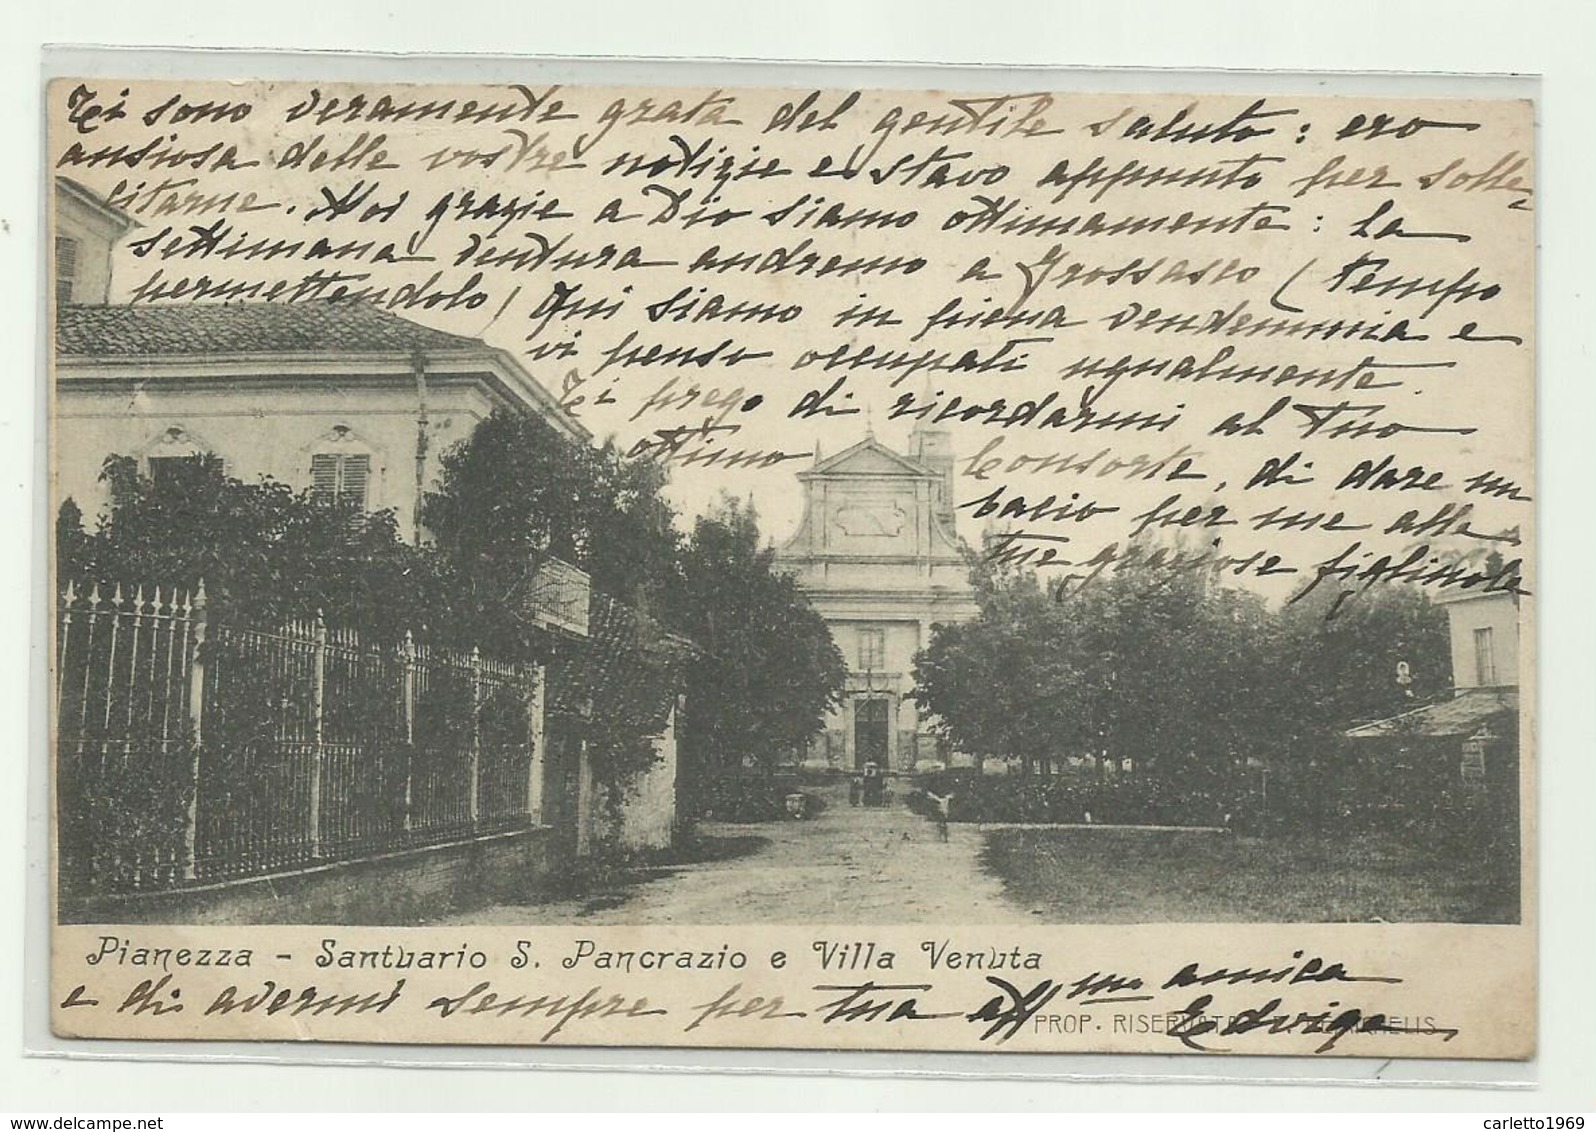 Ti sono veramente grata del gentile saluto: ero
ansiosa delle vostre notizie e stavo appunto per solle
citarne. Noi grazie a Dio siamo ottimamente: la
settimana ventura andremo a Grossasco (tempo
permettendolo) Qui siamo in piena vendemmia e
vi penso occupati ugualmente.
Ti prego di ricordarmi al tuo
ottimo Consorte, di dare un
bacio per me alle
tue graziose figlinole
Pianezza - Santuario S. Pancrazio e Villa Venuta
e di avermi sempre per tua aff.ma amica
PROP. RISERVATA
Edvige
delcampe.net
carletto1969